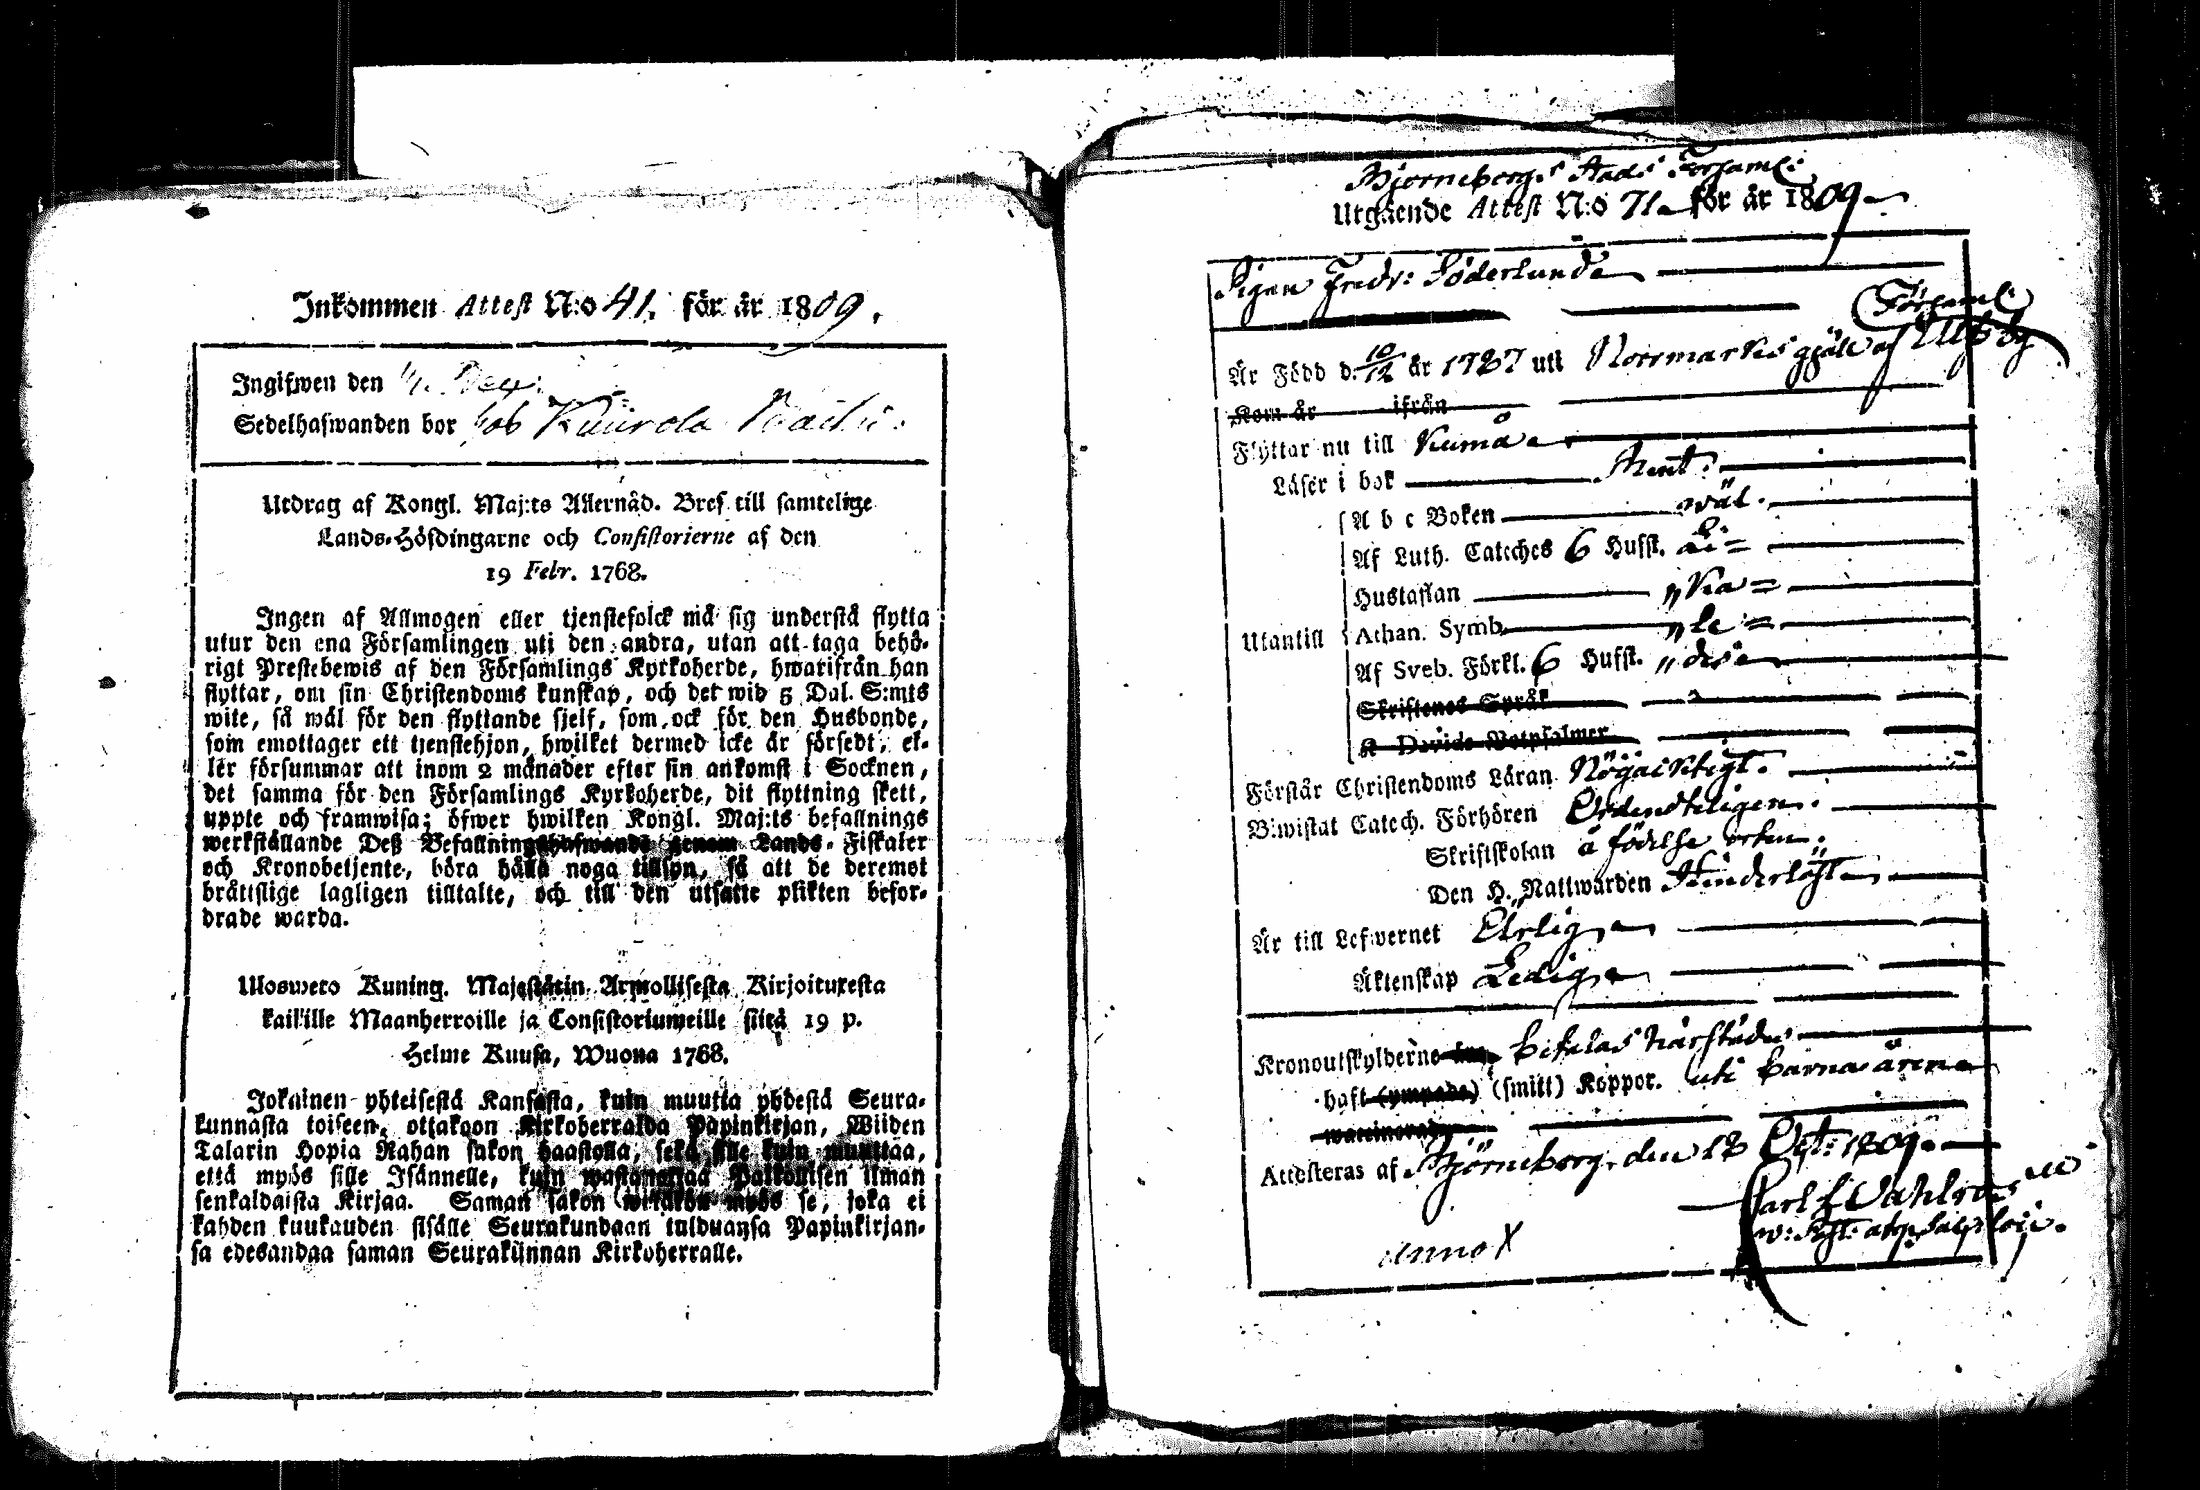 Inkommen Attest N:o 41. för år 1809.
Ingifwen den
Sedelhafwanden bor hos
Utdrag af Kongl. Maj:ts Allernåd. Bref till samtelige
Lands-Höfdingarne och Consistorierne af den
19 Febr. 1768.
Ingen af Allmogen eller tjenstefolck må sig understå flytta
utur den ena Församlingen uti den andra, utan att taga behö-
rigt Prestebewis af den Församlings Kyrkoherde, hwarifrån han
flyttar, om sin Christendoms kunskap, och det wid 5 Dal. S:mts
wite, så wäl för den flyttande sjelf, som ock för den Husbonde,
som emottager ett tjenstehjon, hwilket dermed icke är försedt, el-
ler försummar att inom 2 månader efter sin ankomst i Socknen,
det samma för den Församlings Kyrkoherde, dit flyttning skett,
uppte och framwisa; öfwer hwilken Kongl. Maj:ts befallnings
werkställande Deß Befallningshafwande genom Lands-Fiskaler
och Kronobetjente, böra hålla noga tillsyn, så att de deremot
bråttslige lagligen tilltalte, och till den utsatte plikten befor-
drade warda.
Ulosweto Kuning. Majestätin Armollisesta Kirjoituxesta
kaikille Maanherroille ja Consistoriumeille siitä 19 p.
Helme Kuusa, Wuona 1768.
Jokainen yhteisestä Kansasta, kuin muutta yhdestä Seura-
kunnasta toiseen, ottakoon Kirkoherralda Papinkirjan, Wiiden
Talarin Hopia Rahan sakon haastolla, sekä sille kuin muuttaa,
että myös sille Isännelle, kuin wastanottaa Palkollisen ilman
senkaldaista Kirjaa. Saman sakon wikäkön myös se, joka ei
kahden kuukauden sisälle Seurakundaan tulduansa Papinkirjan-
sa edesandaa saman Seurakunnan Kirkoherralle.
Björneborgs Stads Församl:
Utgående Attest N:o 71 för år 1809
Pigan Fredr: Söderlund
Församl:
Är Född d. 10/12 år 1787 uti Norrmarks gjäll af Ulfsby
Kom år ifrån
Flyttar nu till Kumå
Läser i bok
A b c Boken wäl.
Af Luth. Cateches 6 Hufst.
Hustaflan
Utantill Athan. Symb.
Af Sveb. Förkl. 6 Hufst.
Skriftenes Språk
K Davids Botpsalmer
Förstår Christendoms Läran Nögacktigt.
Biwistat Catech. Förhören Ordenteligen.
Skriftskolan å födelse orten.
Den H. Nattwarden Hinderlöst
Är till Lefwernet Ehrlig
Äktenskap Ledig
Kronoutskylderne betalas härstädes
haft (ympade) (smitt) Koppor. uti barna åren
Attesteras af Björneborg, den 18 Oct: 1809.